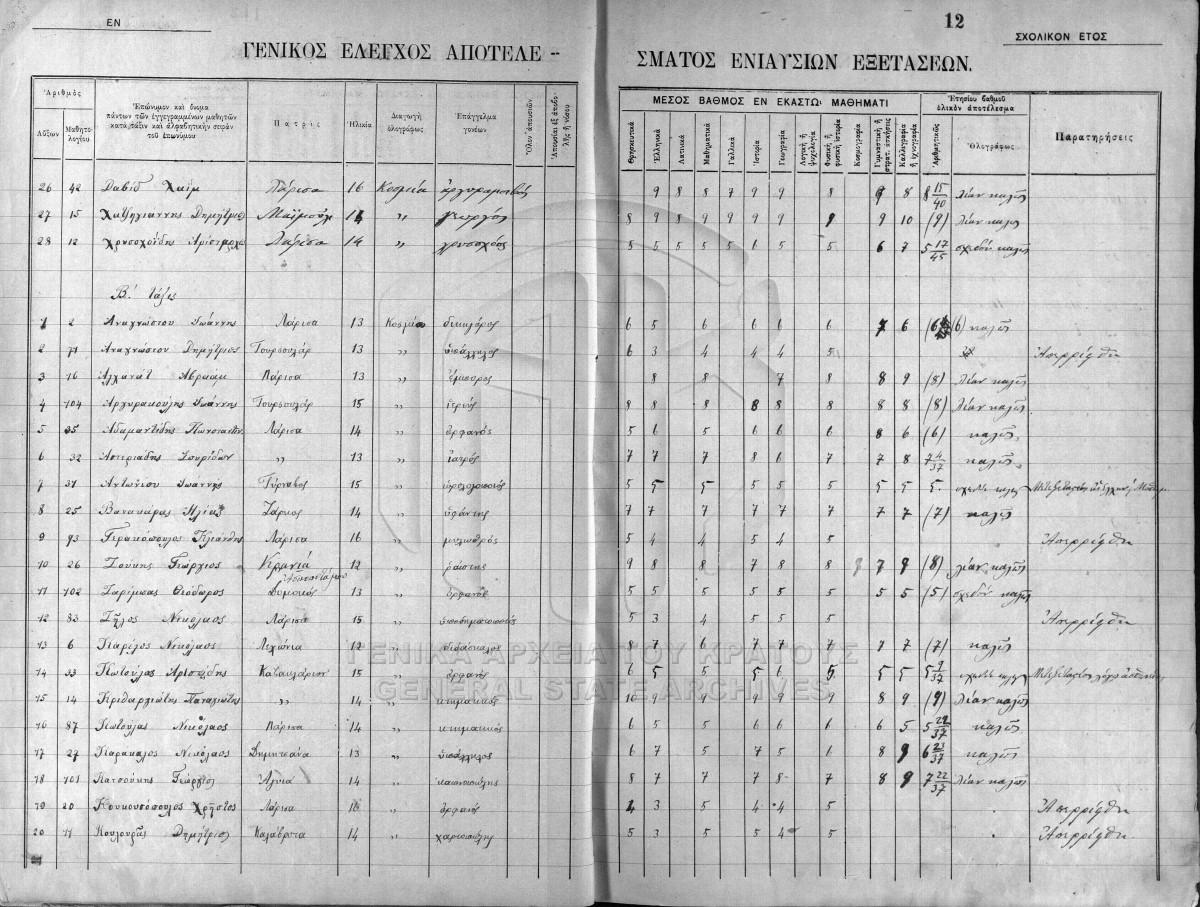 ΕΝ
12
ΣΧΟΛΙΚΟΝ ΕΤΟΣ
ΓΕΝΙΚΟΣ ΕΛΕΓΧΟΣ ΑΠΟΤΕΛΕ-
ΣΜΑΤΟΣ ΕΝΙΑΥΣΙΩΝ ΕΞΕΤΑΣΕΩΝ.
Ἀριθμὸς
Αὔξων
Μαθητολογίου
Ἐπώνυμον καὶ ὄνομα
πάντων τῶν ἐγγεγραμμένων μαθητῶν
κατὰ τάξιν καὶ ἀλφαβητικὴν σειρὰν
τοῦ ἐπωνύμου
Πατρὶς
Ἡλικία
Διαγωγὴ
ὁλογράφως
Ἐπάγγελμα
γονέων
Ὅλον ἀπουσιῶν
Ἀπουσίαι ἐξ ἀποβολῆς ἢ νόσου
ΜΕΣΟΣ ΒΑΘΜΟΣ ΕΝ ΕΚΑΣΤΩι ΜΑΘΗΜΑΤΙ
Θρησκευτικά
Ἑλληνικά
Λατινικά
Μαθηματικά
Γαλλικά
Ἱστορία
Γεωγραφία
Λογικὴ ἢ ψυχολογία
Φυσικὴ ἢ φυσικὴ ἱστορία
Κοσμογραφία
Γυμναστικὴ ἢ στρατ. ἀσκήσεις
Καλλιγραφία ἢ ἰχνογραφία
Ἐτησίου βαθμοῦ
ὁλικὸν ἀποτέλεσμα
Ἀριθμητικῶς
Ὁλογράφως
Παρατηρήσεις
26 42 Δαβὶδ Χαΐμ Λάρισα 16 Κοσμία 9 8 8 7 9 9 8 9 8 8 15/40 λίαν καλῶς
27 15 Χατζηγιάννης Δημήτριος 14 〃 γεωργός 8 9 8 9 9 9 9 9 9 10 (9) λίαν καλῶς
28 12 Χρυσοχοΐδης Ἀρίσταρχος Λάρισα 14 〃 χρυσοχόος 5 5 5 5 5 6 5 5 6 7 5 17/45 σχεδὸν καλῶς
Β΄. τάξις
1 2 Ἀναγνώστου Ἰωάννης Λάρισα 13 Κοσμία δικηγόρος 6 5 6 6 6 6 7 6 (6) καλῶς
2 71 Ἀναγνώστου Δημήτριος Τουρσουλάρ 13 〃 ὑπάλληλος 6 3 4 4 4 5 Ἀπερρίφθη
3 16 Ἀλχανὰτ Ἀβραὰμ Λάρισα 13 〃 ἔμπορος 8 8 7 8 8 9 (8) λίαν καλῶς
4 104 Ἀργυρακούλης Ἰωάννης Τουρσουλάρ 15 〃 ἱερεύς 8 8 8 8 8 8 8 8 (8) λίαν καλῶς
5 35 Ἀδαμαντίδης Κωνσταντῖν. Λάρισα 14 〃 ὀρφανός 5 6 5 6 6 6 8 6 (6) καλῶς
6 32 Ἀστεριάδης Σπυρίδων 〃 13 〃 ἰατρός 7 7 7 8 6 7 7 8 7 4/37 καλῶς
7 31 Ἀντωνίου Ἰωάννης Τύρναβος 15 〃 5 5 5 5 5 5 5 5 5.
8 25 Βανακάρας Ἠλίας Ζάρκος 14 〃 ὑφάντης 7 7 7 7 7 7 7 7 (7) καλῶς
9 93 Γερακόπουλος Κλεάνθης Λάρισα 16 〃 μυλωθρός 5 4 4 5 4 5 Ἀπερρίφθη
10 26 Ζούκης Γεώργιος Κρανιά Ἀσπροποτάμου 12 〃 ῥάπτης 9 8 8 7 8 8 7 9 (8) λίαν καλῶς
11 102 Ζαρίμπας Θεόδωρος Δομοκός 13 〃 ὀρφανός 5 5 5 5 5 5 5 5 (5) σχεδὸν καλῶς
12 83 Ζῆλος Νικόλαος Λάρισα 15 〃 5 3 4 5 5 5 Ἀπερρίφθη
13 6 Καρίλος Νικόλαος Λεχώνια 12 〃 διδάσκαλος 8 7 6 7 7 7 7 7 (7) καλῶς
14 33 Κωτούλας Ἀριστείδης 15 〃 ὀρφανός 6 5 5 5 6 5 5 5 5 9/37
15 14 〃 14 〃 κτηματικός 10 9 9 9 9 9 8 9 (9) λίαν καλῶς
16 87 Κωτούλας Νικόλαος Λάρισα 14 〃 κτηματικός 6 5 5 6 6 6 6 5 5 29/37 καλῶς
17 27 Καρακαλος Νικόλαος Δημητσάνα 13 〃 ὑπάλληλος 6 7 5 7 5 6 8 9 6 23/37 καλῶς
18 101 Κατσούκης Γεώργιος Ἀγυιά 14 〃 καπνοπώλης 8 7 7 7 8 7 8 9 7 22/37 λίαν καλῶς
19 20 Χρῆστος Λάρισα 16 〃 ὀρφανός 4 3 5 4 4 5 Ἀπερρίφθη
20 11 Κουλουρᾶς Δημήτριος Καλάβρυτα 14 〃 χαρτοπώλης 5 3 5 5 4 5 Ἀπερρίφθη
ΓΕΝΙΚΑ ΑΡΧΕΙΑ ΤΟΥ ΚΡΑΤΟΥΣ
GENERAL STATE ARCHIVES